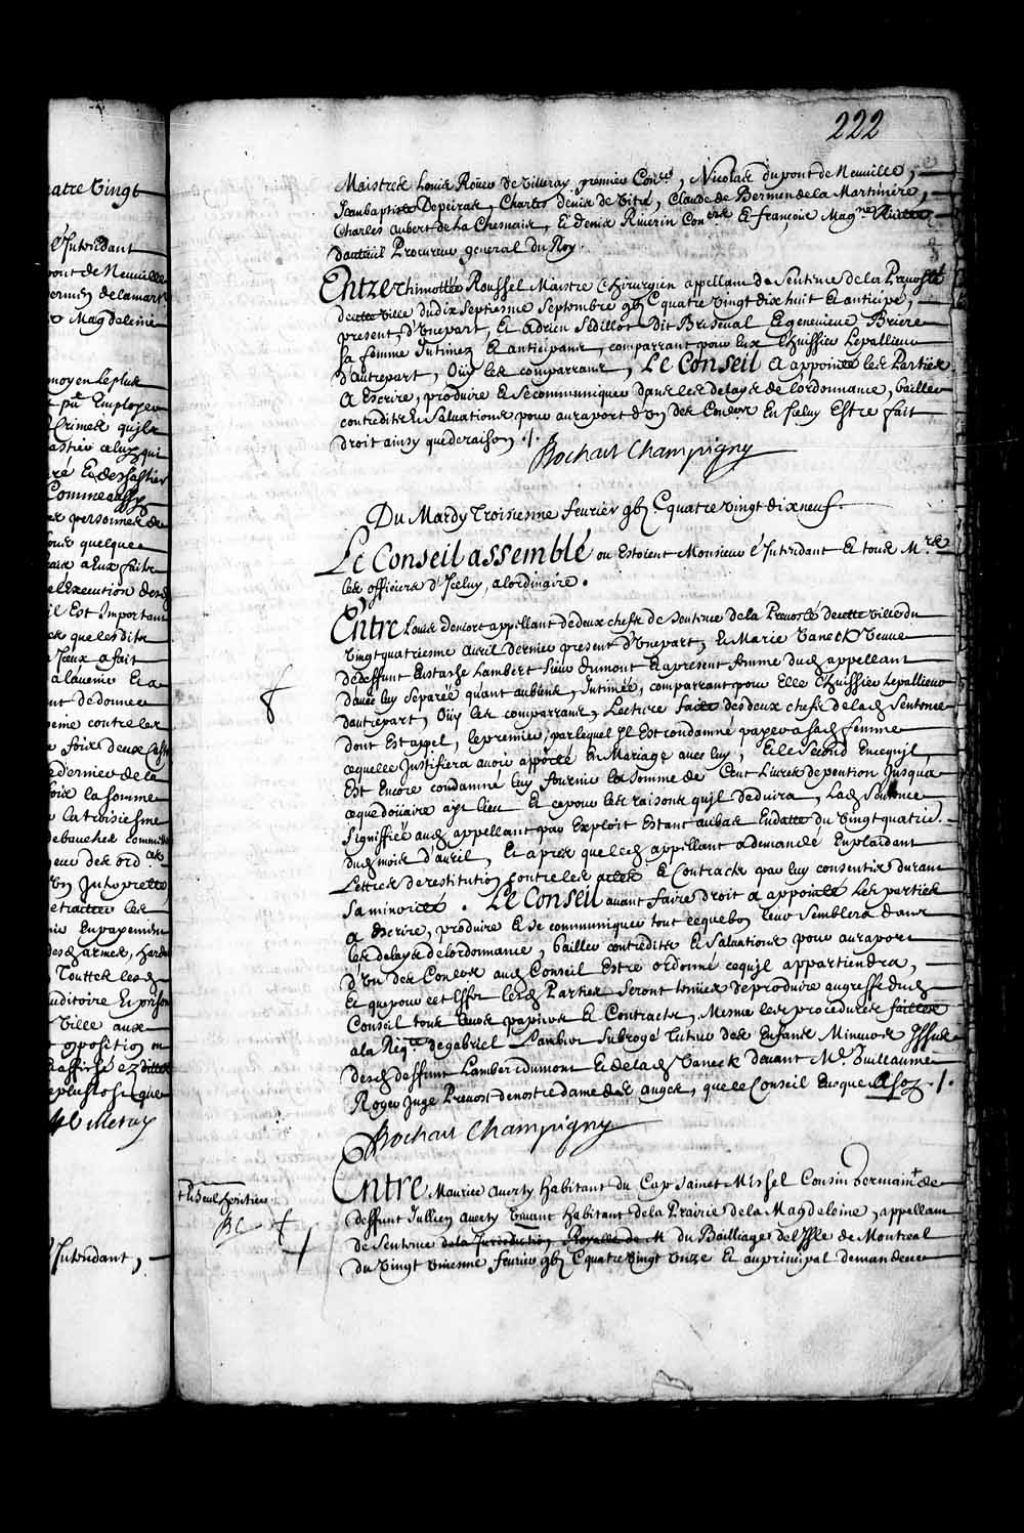 222
Maistres Louis Roüer de Villeray premier Con.er, Nicolas dupont de Neuville,
Jean baptiste Depeiras, Charles denis de Vitré, Claude de Bermen de la Martiniere,
Charles aubert de la Chesnais, Et Denis Riverin Con.ers Et françois Mag.ne Ruette
dauteüil Procureur general du Roy.
Entre thimottée Roussel Maistre Chirurgien appellant de Sentence de la Prevosté
de cette Ville du dix Septiesme Septembre gbj C quatre vingt dix huit Et anticipé,
present, d'Vne part, Et adrien Sedillot dit Briseval Et genevieve Briere
sa femme Intimez Et anticipans, comparrans pour Eux L'huissier Lepallieur
d'autre part, Oüy les comparrans, Le Conseil a appointé les Parties
a Escrire, produire Et se communiquer dans les delays de lordonnance, bailler
contredits Et Salvations pour au raport d'Vn des Con.ers En Iceluy Estre fait
droit ainsy que de raison ./.
Bochart Champigny
Du Mardy Troisiesme feuvrier gbj C quatre vingt dix neuf.
Le Conseil assemblé ou Estoient Monsieur l'Intendant Et tous M.rs
les officiers d'Iceluy, a lordinaire.
Entre Louis deniort appellant de deux chefs de Sentence de la Prevosté de cette Ville du
Vingt quatriesme avril dernier present d'Vne part, Et Marie Vaneck Veuve
de deffunt Eustache Lambert Sieur dumont Et a present femme dud. appellant
d'avec luy separée quant aux biens, Intimée, comparrant pour Elle L'huissier Lepallieur
d'autre part, Oüy les comparrans, Lecture faite des deux chefs de lad. Sentence
dont Est apel, le premier, par lequel Il Est condamné payer a sad. femme
ce quelle Justifiera avoir apporté En Mariage avec luy, Et le Second En ce qu'il
Est Encore condamné luy fournir la Somme de Cent Livres de pention Jusqua
ce que doüaire ayt lieu Et ce pour les raisons quil deduira, Lad. Sentence
Signiffiée aud. appellant par Exploit Estant au bas En datte du Vingt quatrie.
dud. mois d'avril, Et apres que led. appellant a demandé En plaidant
Lettres de restitution contre les actes Et Contracts par luy consentis durant
sa minorité. Le Conseil avant faire droit a appointé Les parties
a Escrire, produire Et se communiquer tout ce que bon leur Semblera dans
les delays de lordonnance, bailler contredits Et Salvations pour au raport
d'Vn des Con.ers aud. Conseil Estre ordonné ce qu'il appartiendra,
Et que pour cet Effet lesd. Parties Seront tenües de produire au greffe dud.
Conseil tous leurs papiers Et Contracts, Mesme les procedures faites
a la Req.te de gabriel Lambert Subrogé Tuteur des Enfans Mineurs Issus
desd. deffunt Lambert dumont Et de lad. Vaneck devant M.e Guillaume
Roger Juge Prevost de nostre dame des anges, que le Conseil Evoque a soy ./.
Bochart Champigny
Entre Maurice averty habitant du Cap Sainct Michel Cousin Germain + de
deffunt Jullien averty vivant habitant de la Prairie de la Magdeleine, appellant
de Sentence de la Jurisdiction Royalle de M du Bailliage de l'Isle de Montreal
du Vingt Vniesme feuvrier gbj C quatre Vingt Vnze Et au principal demandeur
+ Et Seul heritier
BC
atre Vingt
l'Intendant
pont de Neuville
ermen de la mart
Magdeleine
moyen le plus
Employer
Crimes qu'ils
Comme aussy
personnes de
quelque
a Eux faits
l'Execution des
il Est Important
que lesdits
Jeux a fait
a l'avenir Et a
de donner
peine contre les
fois deux
dernier de la
fois la somme
la troisiesme
debaucher comme
des ord.ces
Vn Interprette
Et traitter les
En payement
des armes, hardes
Touttes lesd.
auditoire Et prison
Ville aux
opposition
affiché
plustost que
l'Intendant,